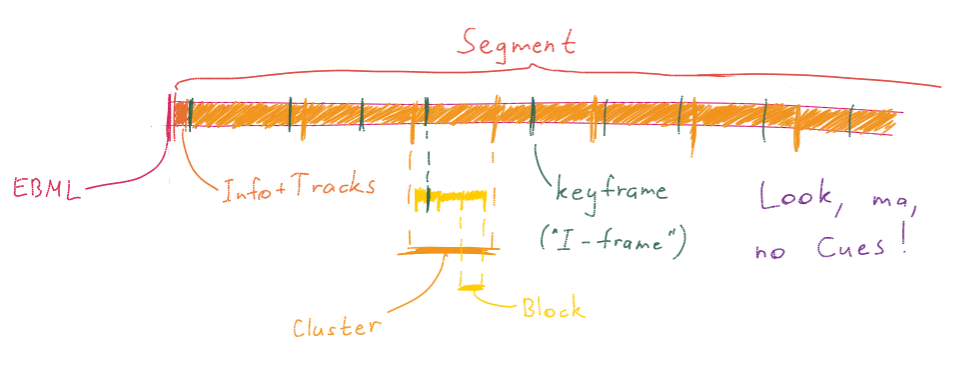 Segment
EBML
Info+Tracks
keyframe
("I-frame")
Look, ma,
no Cues!
Block
Cluster